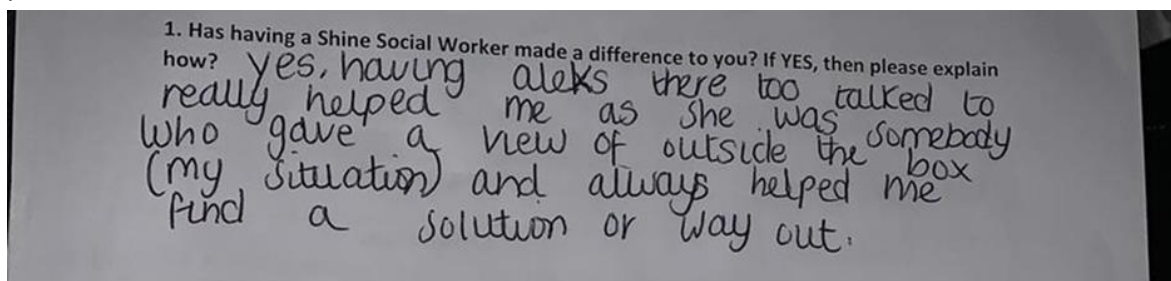 1. Has having a Shine Social Worker made a difference to you? If YES, then please explain
how? Yes, having aleks there too talked to
really helped me as she was somebody
who gave a view of outside the box
(my situation) and always helped me
find a solution or way out.